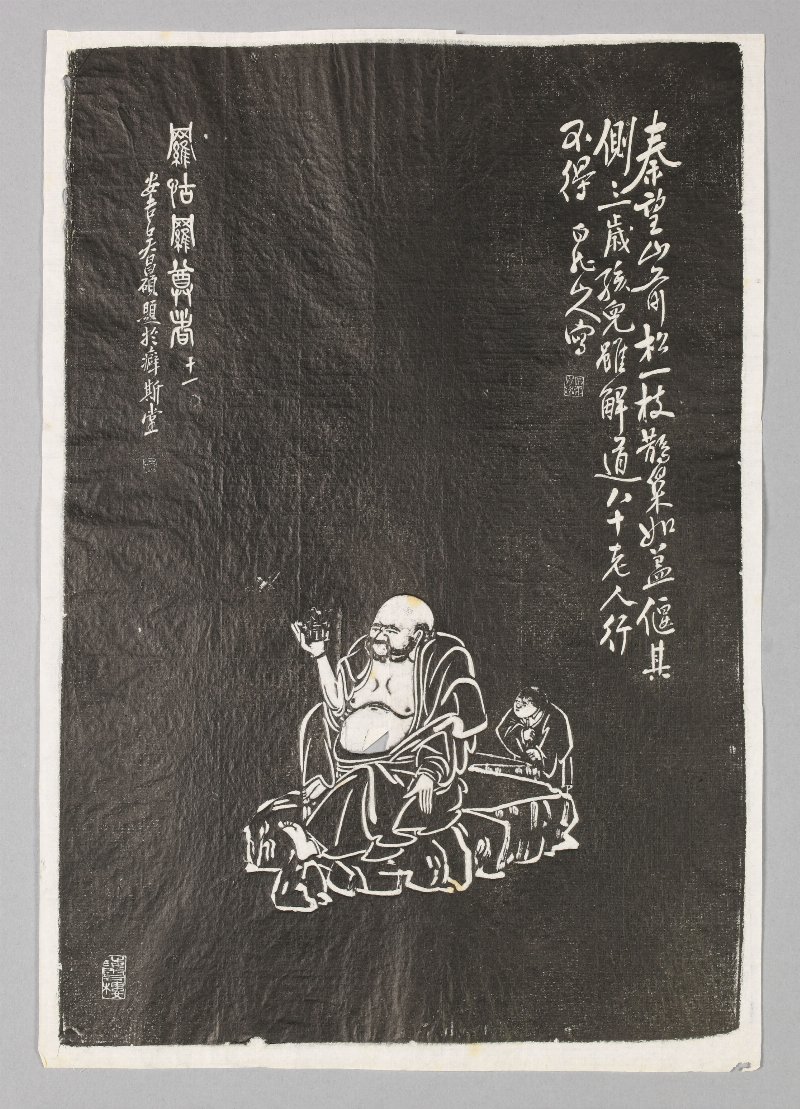 秦望山前松一枝鵲巢如蓋偃其
側三歲孩兒雖解道八十老人行
不得 白龍山人寫
羅怙羅尊者 十一
安吉吳昌碩題於癖斯堂